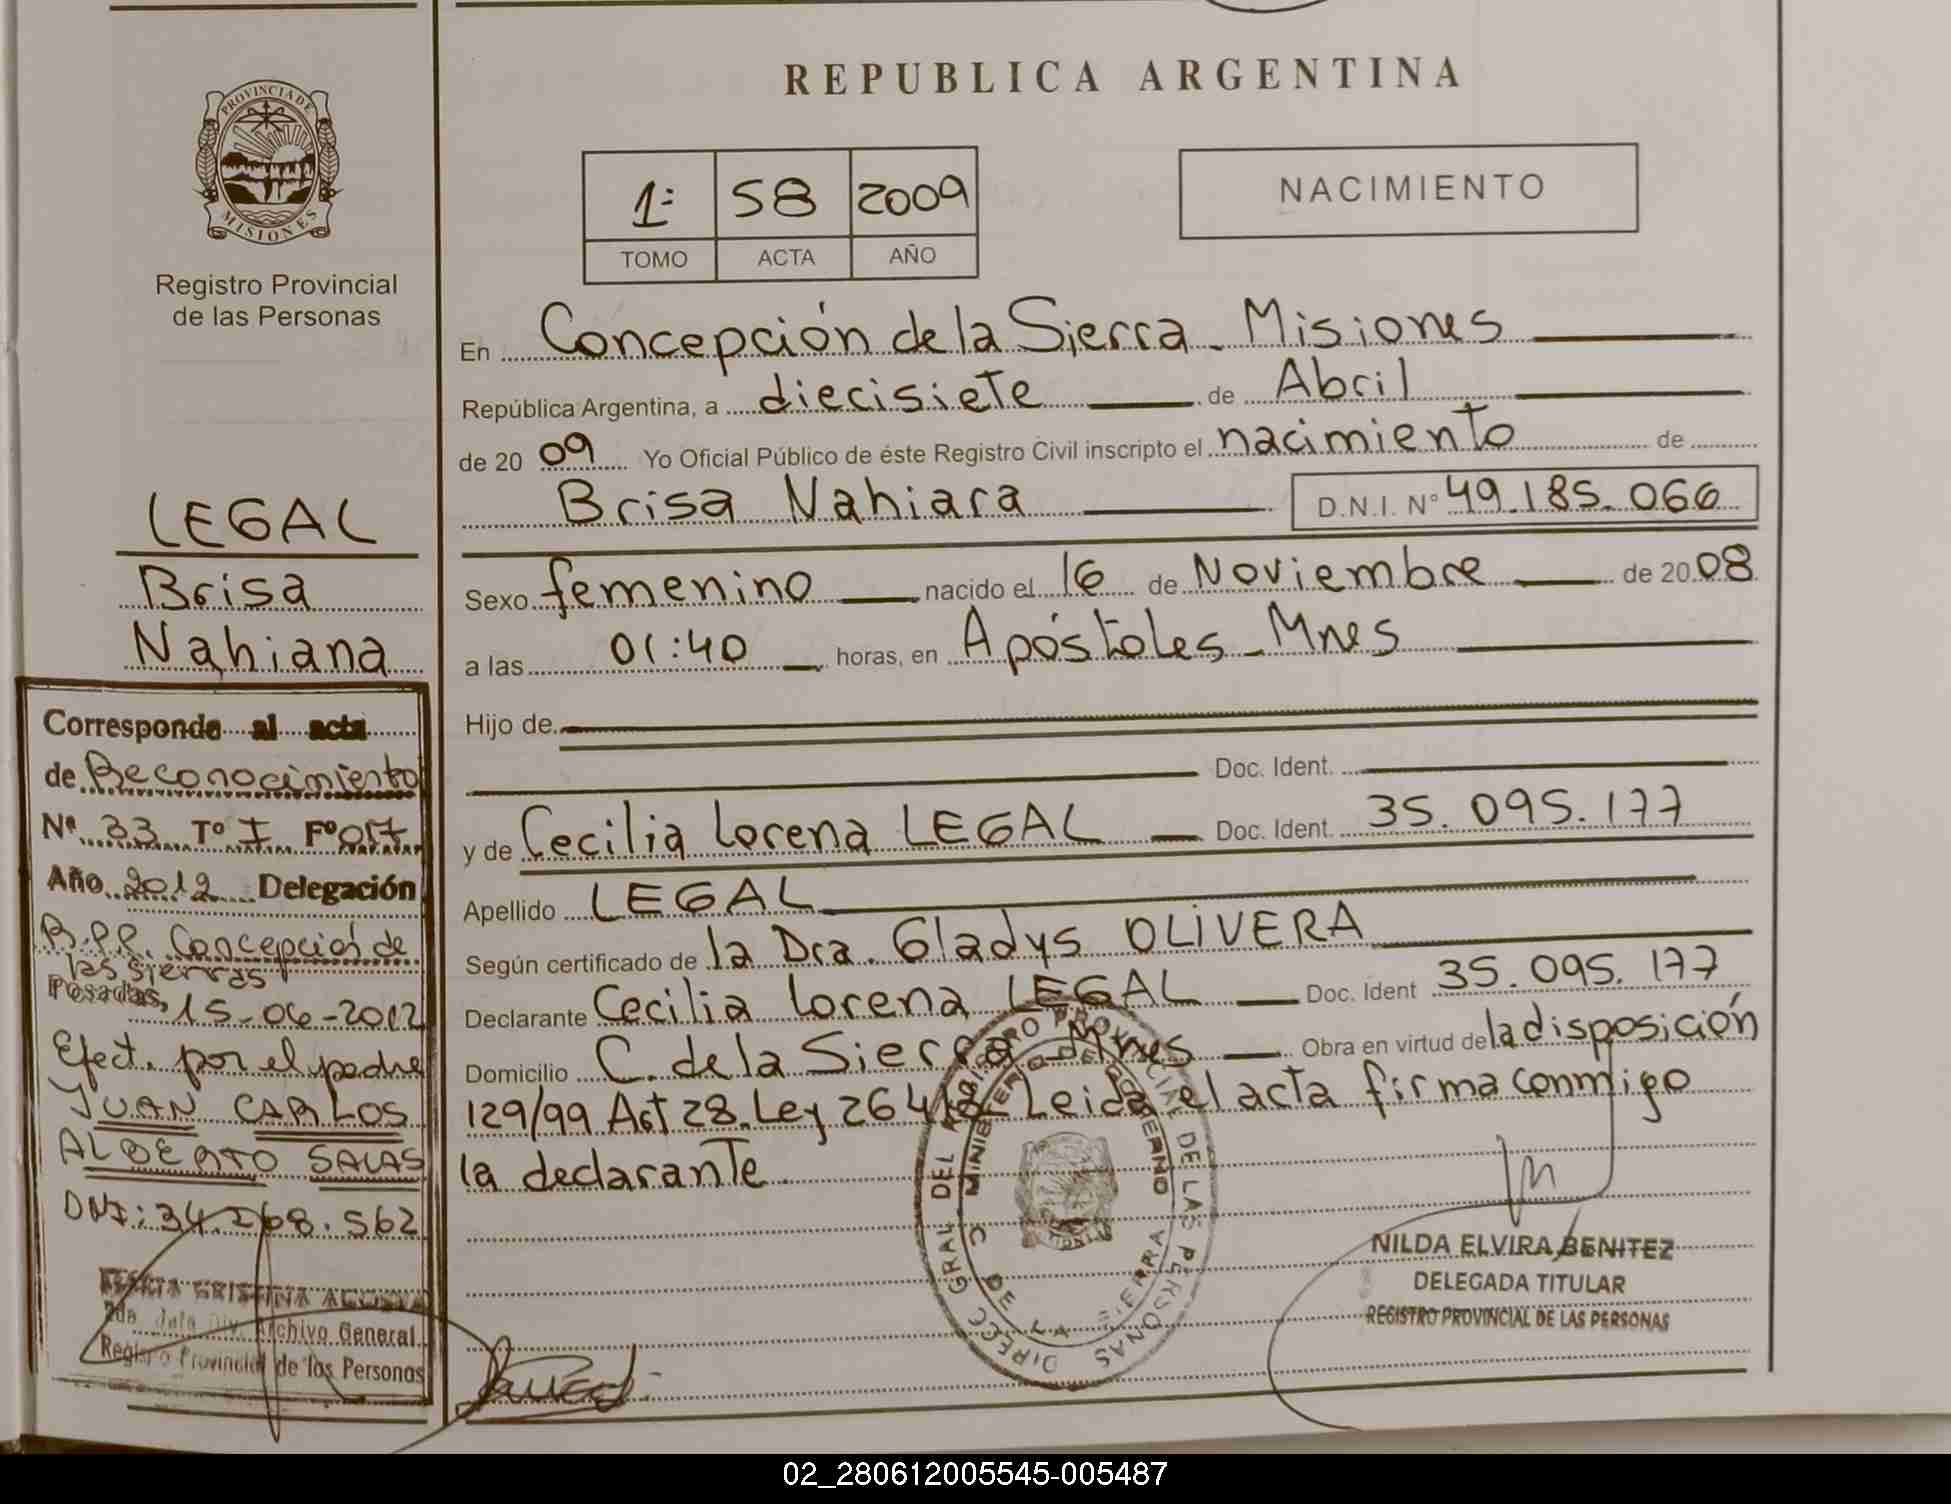 REPUBLICA ARGENTINA
PROVINCIA DE
MISIONES
Registro Provincial
de las Personas
1º 58 2009
TOMO ACTA AÑO
NACIMIENTO
En Concepción de la Sierra - Misiones
República Argentina, a diecisiete de Abril
de 20 09 Yo Oficial Público de éste Registro Civil inscripto el nacimiento de
Brisa Nahiara D.N.I. Nº 49.185.066
Sexo femenino nacido el 16 de Noviembre de 20 08
a las 01:40 horas, en Apóstoles - Mnes
Hijo de
Doc. Ident.
y de Cecilia Lorena LEGAL Doc. Ident. 35.095.177
Apellido LEGAL
Según certificado de la Dra. Gladys OLIVERA
Declarante Cecilia Lorena LEGAL Doc. Ident 35.095.177
Domicilio C. de la Sierra Mnes Obra en virtud de la disposición
129/99 Art 28. Ley 26413 Leida el acta firma conmigo
la declarante.
LEGAL
Brisa
Nahiana
Corresponde al acta
de Reconocimiento
Nº 33 Tº I Fº 017
Año 2012 Delegación
R.P.P. Concepción de
las Sierras
Posadas, 15-06-2012
Efect. por el padre
JUAN CARLOS
ALBERTO SALAS
DNI: 34.268.562
CRISTINA
Archivo General
Registro Provincial de las Personas
DIREC. GRAL DEL REGISTRO PROVINCIAL DE LAS PERSONAS
MINISTERIO DE GOBIERNO
C. DE LA SIERRA
NILDA ELVIRA BENITEZ
DELEGADA TITULAR
REGISTRO PROVINCIAL DE LAS PERSONAS
02_280612005545-005487